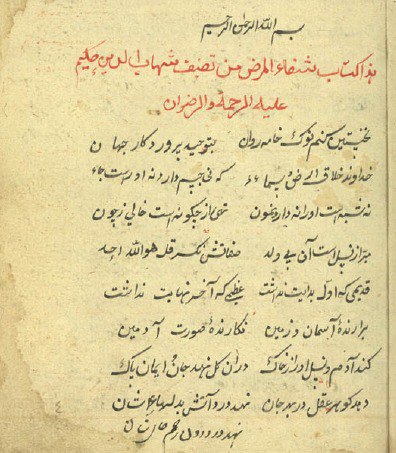 بسم الله الرحمن الرحیم
هذا کتاب شفاء المرض من تصنیف شهاب الدین حکیم
علیه الرحمة والرضوان
نخستین کنم نوک خامه روان بتوحید پروردگار جهان
خداوند خلاق ارض و سما که نی جسم دارد نه او راست جا
نه شبه است او را نه دارد نمون از چگونه است خالی ز چون
مبرا ز نسل است آن بی ولد صفاتش قل هو الله احد
قدیمی که اول بدایت نداشت عظیمی که آخر نهایت نداشت
برارندهٔ آسمان و زمین نگارندهٔ صورت آدمین
کند آدم و نسل او را ز خاک دران گل نهد جان و ایمان پاک
دهد گوهر عقل در بدر جان نهد درو آتش بدلها
نهد درو